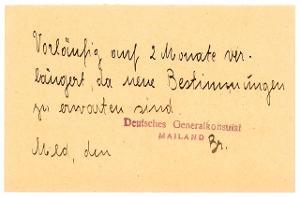 Vorläufig auf 2 Monate ver-
längert, da neue Bestimmungen
zu erwarten sind.
Deutsches Generalkonsulat
MAILAND
Mld, den